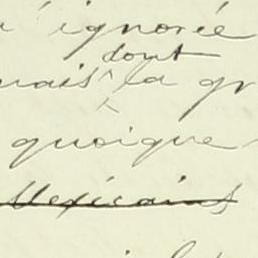 ignorée
dont
mais la gr
quoique
Mexicains